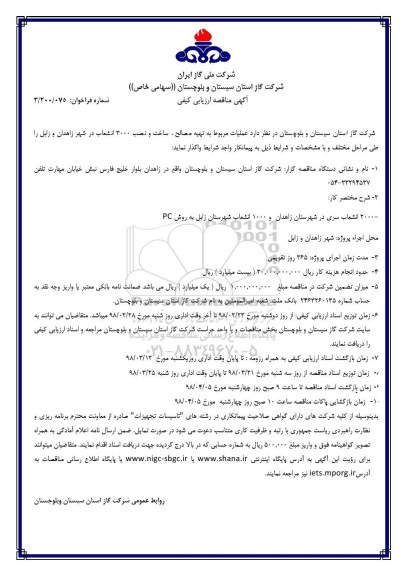 شرکت ملی گاز ایران
شرکت گاز استان سیستان و بلوچستان ((سهامی خاص))
آگهی مناقصه ارزیابی کیفی
شماره فراخوان: ۳/۲۰۰/۰۷۵
شرکت گاز استان سیستان و بلوچستان در نظر دارد عملیات مربوط به تهیه مصالح ، ساخت و نصب ۳۰۰۰ انشعاب در شهر زاهدان و زابل را
طی مراحل مختلف و با مشخصات و شرایط ذیل به پیمانکار واجد شرایط واگذار نماید:
۱- نام و نشانی دستگاه مناقصه گزار: شرکت گاز استان سیستان و بلوچستان واقع در زاهدان بلوار خلیج فارس نبش خیابان مهارت تلفن
۰۵۴-۳۳۲۹۴۵۳۷
۲- شرح مختصر کار:
-۲۰۰۰ انشعاب سری در شهرستان زاهدان و ۱۰۰۰ انشعاب شهرستان زابل به روش PC
محل اجراء پروژه: شهر زاهدان و زابل
۳- مدت زمان اجرای پروژه: ۳۶۵ روز تقویمی
۴- حدود انجام هزینه کار ریال ۲۰,۰۰۰,۰۰۰,۰۰۰ ( بیست میلیارد ) ریال
۵- میزان تضمین شرکت در مناقصه مبلغ ۱,۰۰۰,۰۰۰,۰۰۰ ریال ( یک میلیارد ) ریال می باشد ضمانت نامه بانکی معتبر یا واریز وجه نقد به
حساب شماره ۲۴۶۳۲۶۰۱۳۵ بانک ملت شعبه امیرالمومنین به نام شرکت گاز استان سیستان و بلوچستان.
۶- زمان توزیع اسناد ارزیابی کیفی: از روز دوشنبه مورخ ۹۸/۰۲/۲۳ تا آخر وقت اداری روز شنبه مورخ ۹۸/۰۲/۲۸ میباشد. متقاضیان می توانند به
سایت شرکت گاز سیستان و بلوچستان بخش مناقصات و یا واحد حراست شرکت گاز استان سیستان و بلوچستان مراجعه و اسناد ارزیابی کیفی
را دریافت نمایند.
۷- زمان بازگشت اسناد ارزیابی کیفی به همراه رزومه : تا پایان وقت اداری روزیکشنبه مورخ ۹۸/۰۳/۱۲
زمان توزیع اسناد مناقصه از روز سه شنبه مورخ ۹۸/۰۳/۲۱ تا پایان وقت اداری روز شنبه ۹۸/۰۳/۲۵
زمان بازگشت اسناد مناقصه تا ساعت ۹ صبح روز چهارشنبه مورخ ۹۸/۰۴/۰۵
۱۰- زمان بازگشایی پاکات مناقصه ساعت ۱۰ صبح روز چهارشنبه مورخ ۹۸/۰۴/۰۵
بدینوسیله از کلیه شرکت های دارای گواهی صلاحیت پیمانکاری در رشته های "تاسیسات تجهیزات" صادره از معاونت محترم برنامه ریزی و
نظارت راهبردی ریاست جمهوری با رتبه و ظرفیت کاری متناسب دعوت می شود در صورت تمایل، ضمن ارسال نامه اعلام آمادگی به همراه
تصویر گواهینامه فوق و واریز مبلغ ۵۰۰,۰۰۰ ریال به شماره حسابی که در بالا درج گردیده جهت دریافت اسناد اقدام نمایند. متقاضیان میتوانند
برای رؤیت این آگهی به آدرس پایگاه اینترنتی www.shana.ir یا www.nigc-sbgc.ir یا پایگاه اطلاع رسانی مناقصات به
آدرس iets.mporg.ir نیز مراجعه نمایند.
روابط عمومی شرکت گاز استان سیستان وبلوچستان